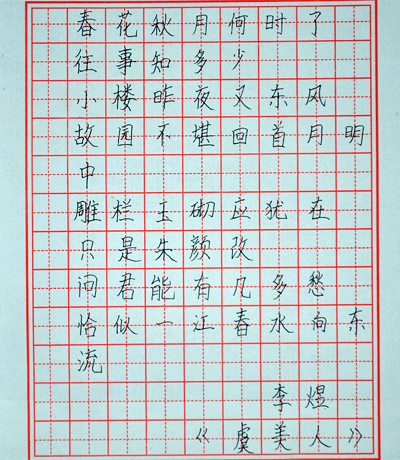 春花秋月何时了
往事知多少
小楼昨夜又东风
故园不堪回首月明
中
雕栏玉砌应犹在
只是朱颜改
问君能有几多愁
恰似一江春水向东
流
李煜
《虞美人》